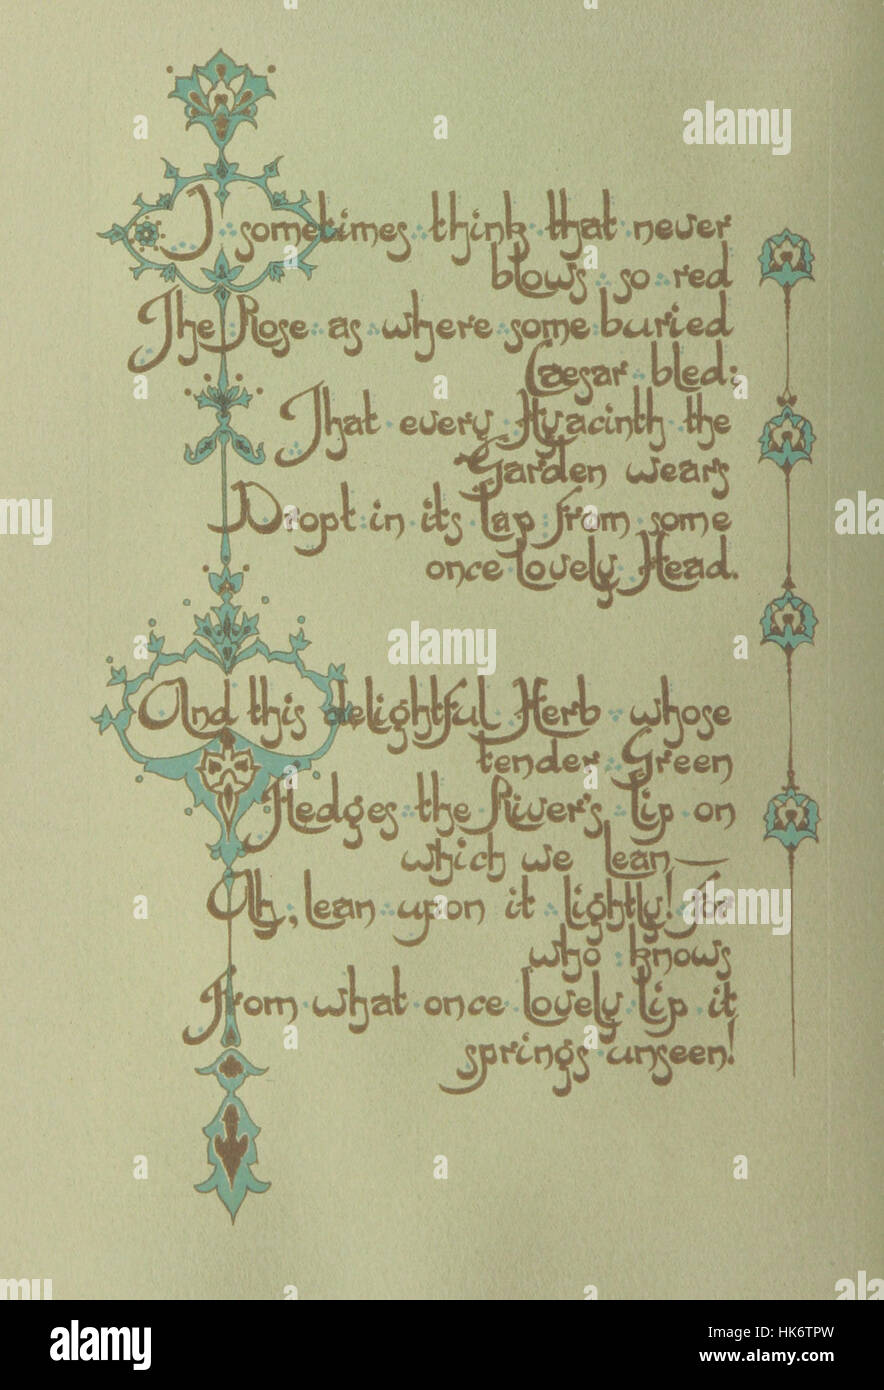 I sometimes think that never
blows so red
The Rose as where some buried
Caesar bled;
That every Hyacinth the
Garden wears
Dropt in its Lap from some
once Lovely Head.
And this delightful Herb whose
tender Green
Hedges the River's Lip on
which we Lean—
Ah, Lean upon it lightly! for
who knows
From what once Lovely Lip it
springs unseen!
a
a
alamy
alamy
a
a
a
a
a
a
alamy
Image ID: HK6TPW
www.alamy.com